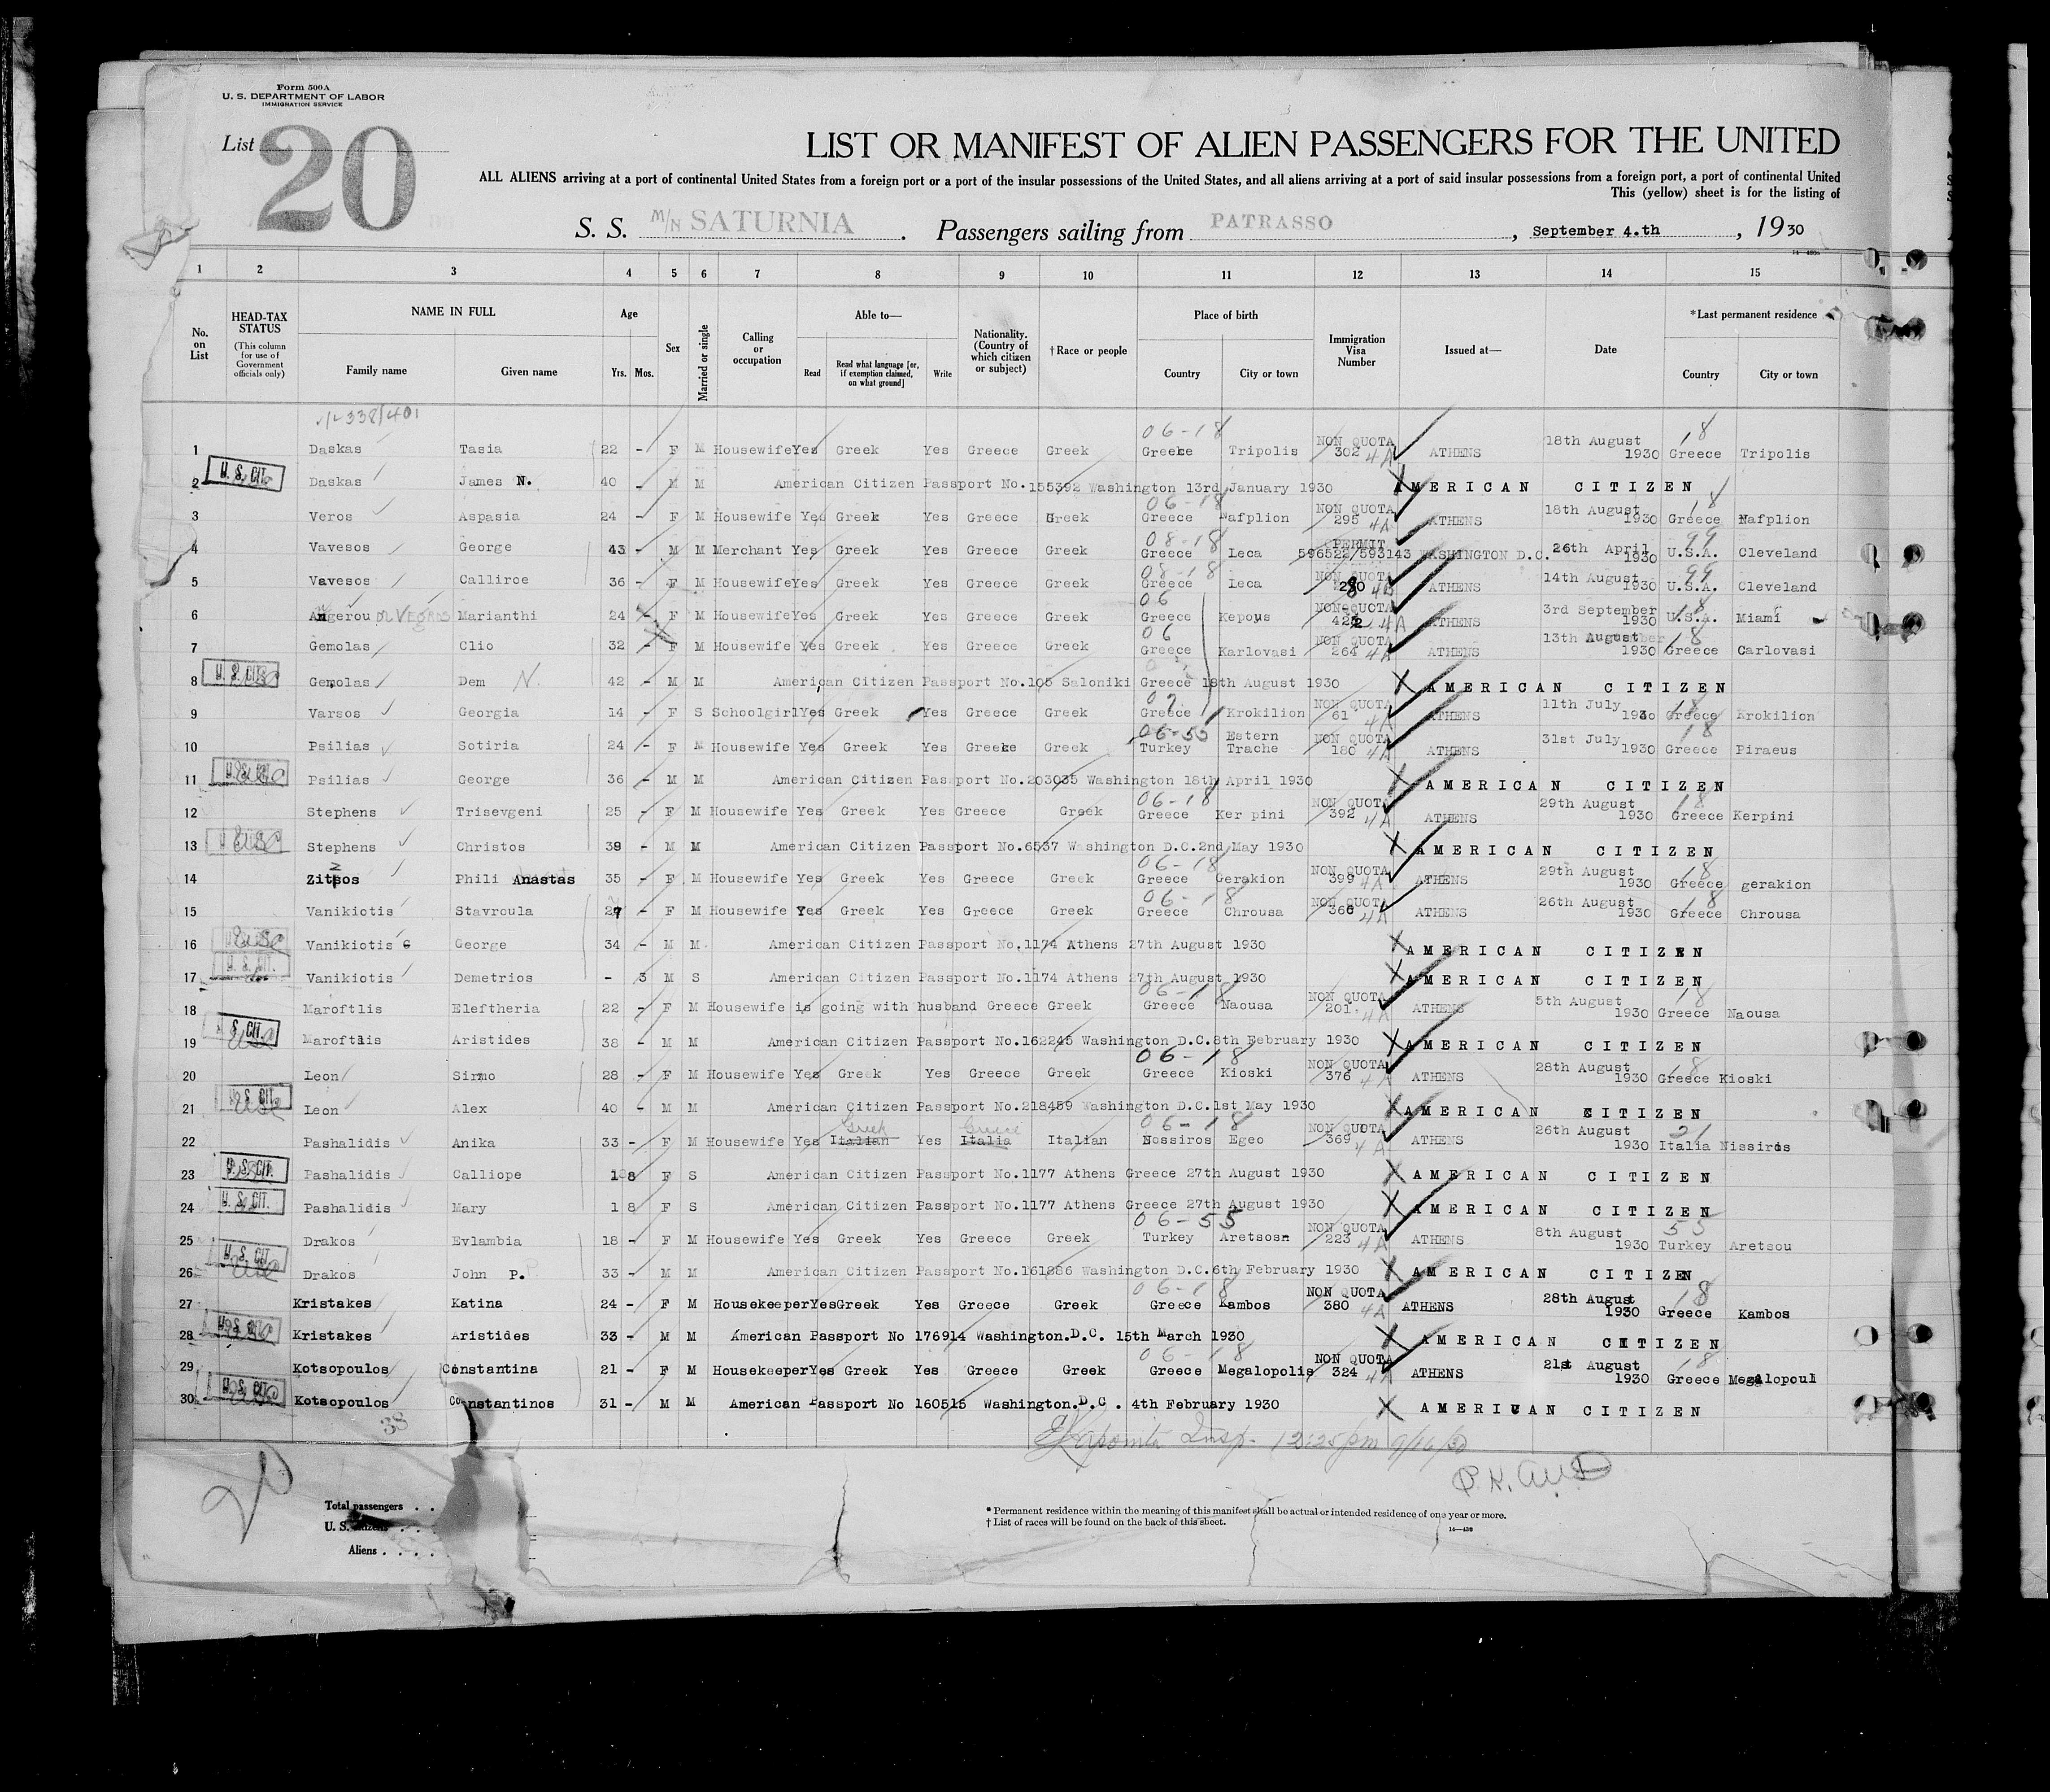 Form 500A
U. S. DEPARTMENT OF LABOR
IMMIGRATION SERVICE
List 20
LIST OR MANIFEST OF ALIEN PASSENGERS FOR THE UNITED
ALL ALIENS arriving at a port of continental United States from a foreign port or a port of the insular possessions of the United States, and all aliens arriving at a port of said insular possessions from a foreign port, a port of continental United
This (yellow) sheet is for the listing of
S. S. M/N SATURNIA . Passengers sailing from PATRASSO , September 4.th , 1930
1 2 3 4 5 6 7 8 9 10 11 12 13 14 15
No. on List
HEAD-TAX STATUS (This column for use of Government officials only)
NAME IN FULL
Family name Given name
Age Yrs. Mos.
Sex
Married or single
Calling or occupation
Able to—
Read Read what language [or, if exemption claimed, on what ground] Write
Nationality. (Country of which citizen or subject)
†Race or people
Place of birth
Country City or town
Immigration Visa Number
Issued at—
Date
*Last permanent residence
Country City or town
06-18 18
1 Daskas Tasia 22 - F M Housewife Yes Greek Yes Greece Greek Greece Tripolis NON QUOTA 302 4A ATHENS 18th August 1930 Greece Tripolis
2 U. S. CIT. Daskas James N. 40 - M M American Citizen Passport No.155392 Washington 13rd January 1930 AMERICAN CITIZEN
06-18
3 Veros Aspasia 24 - F M Housewife Yes Greek Yes Greece Greek Greece Nafplion NON QUOTA 295 4A ATHENS 18th August 1930 Greece Nafplion
08-18 99
4 Vavesos George 43 - M M Merchant Yes Greek Yes Greece Greek Greece Leca PERMIT 596522/593143 WASHINGTON D.C. 26th April 1930 U.S.A. Cleveland
08-18 99
5 Vavesos Calliroe 36 - F M Housewife Yes Greek Yes Greece Greek Greece Leca NON QUOTA ATHENS 14th August 1930 U.S.A. Cleveland
06
6 Angerou Marianthi 24 - F M Housewife Yes Greek Yes Greece Greek Greece Kepous NON QUOTA 4A ATHENS 3rd September 1930 U.S.A. Miami
06 18
7 Gemolas Clio 32 - F M Housewife Yes Greek Yes Greece Greek Greece Karlovasi NON QUOTA 264 4A ATHENS 13th August 1930 Greece Carlovasi
8 U. S. CIT. Gemolas Dem N. 42 - M M American Citizen Passport No.105 Saloniki Greece 18th August 1930 AMERICAN CITIZEN
9 Varsos Georgia 14 - F S Schoolgirl Yes Greek Yes Greece Greek Greece Krokilion NON QUOTA 61 4A ATHENS 11th July 1930 Greece Krokilion
06-55 18
10 Psilias Sotiria 24 - F M Housewife Yes Greek Yes Greece Greek Turkey Estern Trache NON QUOTA 180 4A ATHENS 31st July 1930 Greece Piraeus
11 U. S. CIT. Psilias George 36 - M M American Citizen Passport No.203035 Washington 18th April 1930 AMERICAN CITIZEN
06-18 18
12 Stephens Trisevgeni 25 - F M Housewife Yes Greek Yes Greece Greek Greece Ker pini NON QUOTA 392 4A ATHENS 29th August 1930 Greece Kerpini
13 Stephens Christos 39 - M M American Citizen Passport No.6537 Washington D.C.2nd May 1930 AMERICAN CITIZEN
06-18 18
14 Zitsos Phili Anastas 35 - F M Housewife Yes Greek Yes Greece Greek Greece Gerakion NON QUOTA 399 4A ATHENS 29th August 1930 Greece gerakion
06-18 18
15 Vanikiotis Stavroula 27 - F M Housewife Yes Greek Yes Greece Greek Greece Chrousa NON QUOTA 366 4A ATHENS 26th August 1930 Greece Chrousa
16 Vanikiotis G George 34 - M M American Citizen Passport No.1174 Athens 27th August 1930 AMERICAN CITIZEN
17 U. S. CIT. Vanikiotis Demetrios - 3 M S American Citizen Passport No.1174 Athens 27th August 1930 AMERICAN CITIZEN
06-18 18
18 Maroftlis Eleftheria 22 - F M Housewife is going with husband Greece Greek Greece Naousa NON QUOTA 201. 4A ATHENS 5th August 1930 Greece Naousa
19 U. S. CIT. Maroftlis Aristides 38 - M M American Citizen Passport No.162245 Washington D.C.8th February 1930 AMERICAN CITIZEN
06-18 18
20 Leon Sirmo 28 - F M Housewife Yes Greek Yes Greece Greek Greece Kioski NON QUOTA 376 4A ATHENS 28th August 1930 Greece Kioski
21 U. S. CIT. Leon Alex 40 - M M American Citizen Passport No.218459 Washington D.C.1st May 1930 AMERICAN CITIZEN
Greek Greece 06-18 21
22 Pashalidis Anika 33 - F M Housewife Yes Italian Yes Italia Italian Nossiros Egeo NON QUOTA 369 4A ATHENS 26th August 1930 Italia Nissiros
23 U. S. CIT. Pashalidis Calliope F S American Citizen Passport No.1177 Athens Greece 27th August 1930 AMERICAN CITIZEN
24 U. S. CIT. Pashalidis Mary 1 8 F S American Citizen Passport No.1177 Athens Greece 27th August 1930 AMERICAN CITIZEN
06-55 55
25 Drakos Evlambia 18 - F M Housewife Yes Greek Yes Greece Greek Turkey NON QUOTA 223 4A ATHENS 8th August 1930 Turkey Aretsou
26 U. S. CIT. Drakos John P. 33 - M M American Citizen Passport No.161886 Washington D.C.6th February 1930 AMERICAN CITIZEN
06-18 18
27 Kristakes Katina 24 - F M Housekeeper Yes Greek Yes Greece Greek Greece Kambos NON QUOTA 380 4A ATHENS 28th August 1930 Greece Kambos
28 Kristakes Aristides 33 - M M American Passport No 176914 Washington.D.C. 15th March 1930 AMERICAN CITIZEN
06-18 18
29 Kotsopoulos Constantina 21 - F M Housekeeper Yes Greek Yes Greece Greek Greece Megalopolis NON QUOTA 324 4A ATHENS 21st August 1930 Greece Megalopoul
30 U. S. CIT. Kotsopoulos Constantinos 31 - M M American Passport No 160515 Washington.D.C . 4th February 1930 AMERICAN CITIZEN
38
Insp. 12:25 pm 9/16/30
20
Total passengers . .
U. S. citizens . .
Aliens . . . .
* Permanent residence within the meaning of this manifest shall be actual or intended residence of one year or more.
† List of races will be found on the back of this sheet.